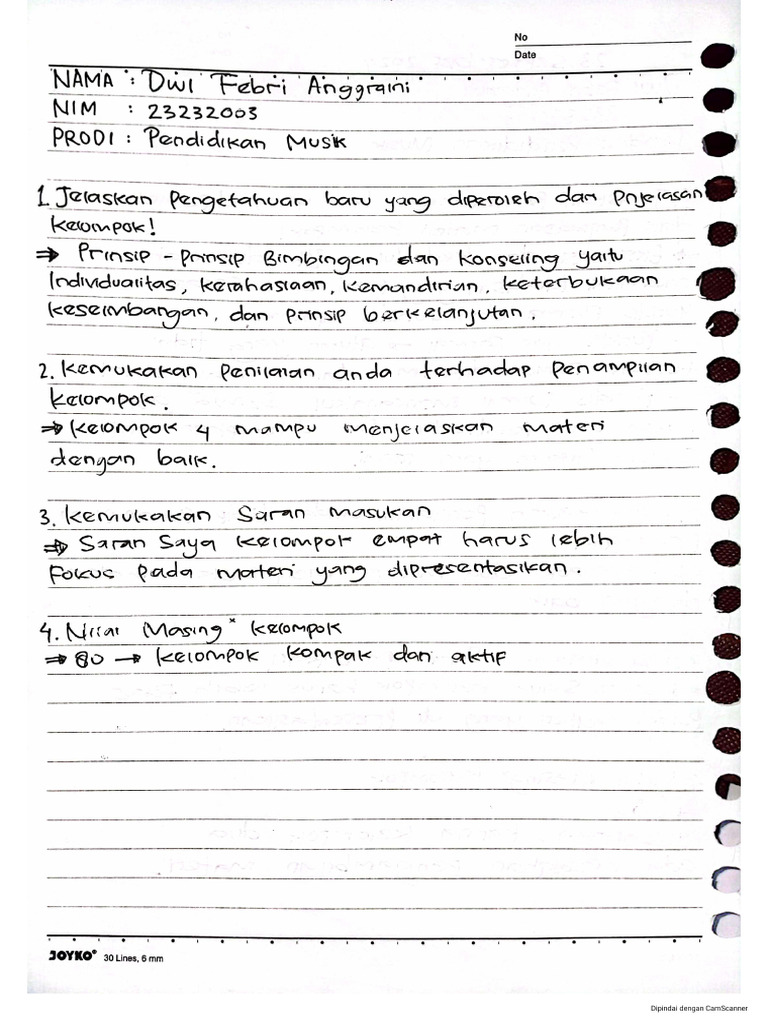 No
Date
NAMA : Dwi Febri Anggraini
NIM : 23232003
PRODI : Pendidikan Musik
1. Jelaskan pengetahuan baru yang diperoleh dari pnjelasan
kelompok!
⇒ Prinsip - prinsip Bimbingan dan konseling yaitu
Individualitas, kerahasiaan, kemandirian, keterbukaan
keseimbangan, dan prinsip berkelanjutan.
2. kemukakan penilaian anda terhadap penampilan
kelompok.
⇒ kelompok 4 mampu menjelaskan materi
dengan baik.
3. kemukakan Saran masukan
⇒ Saran Saya kelompok empat harus lebih
fokus pada materi yang dipresentasikan.
4. Nilai Masing" kelompok
⇒ 80 → kelompok kompak dan aktif
JOYKO® 30 Lines, 6 mm
Dipindai dengan CamScanner